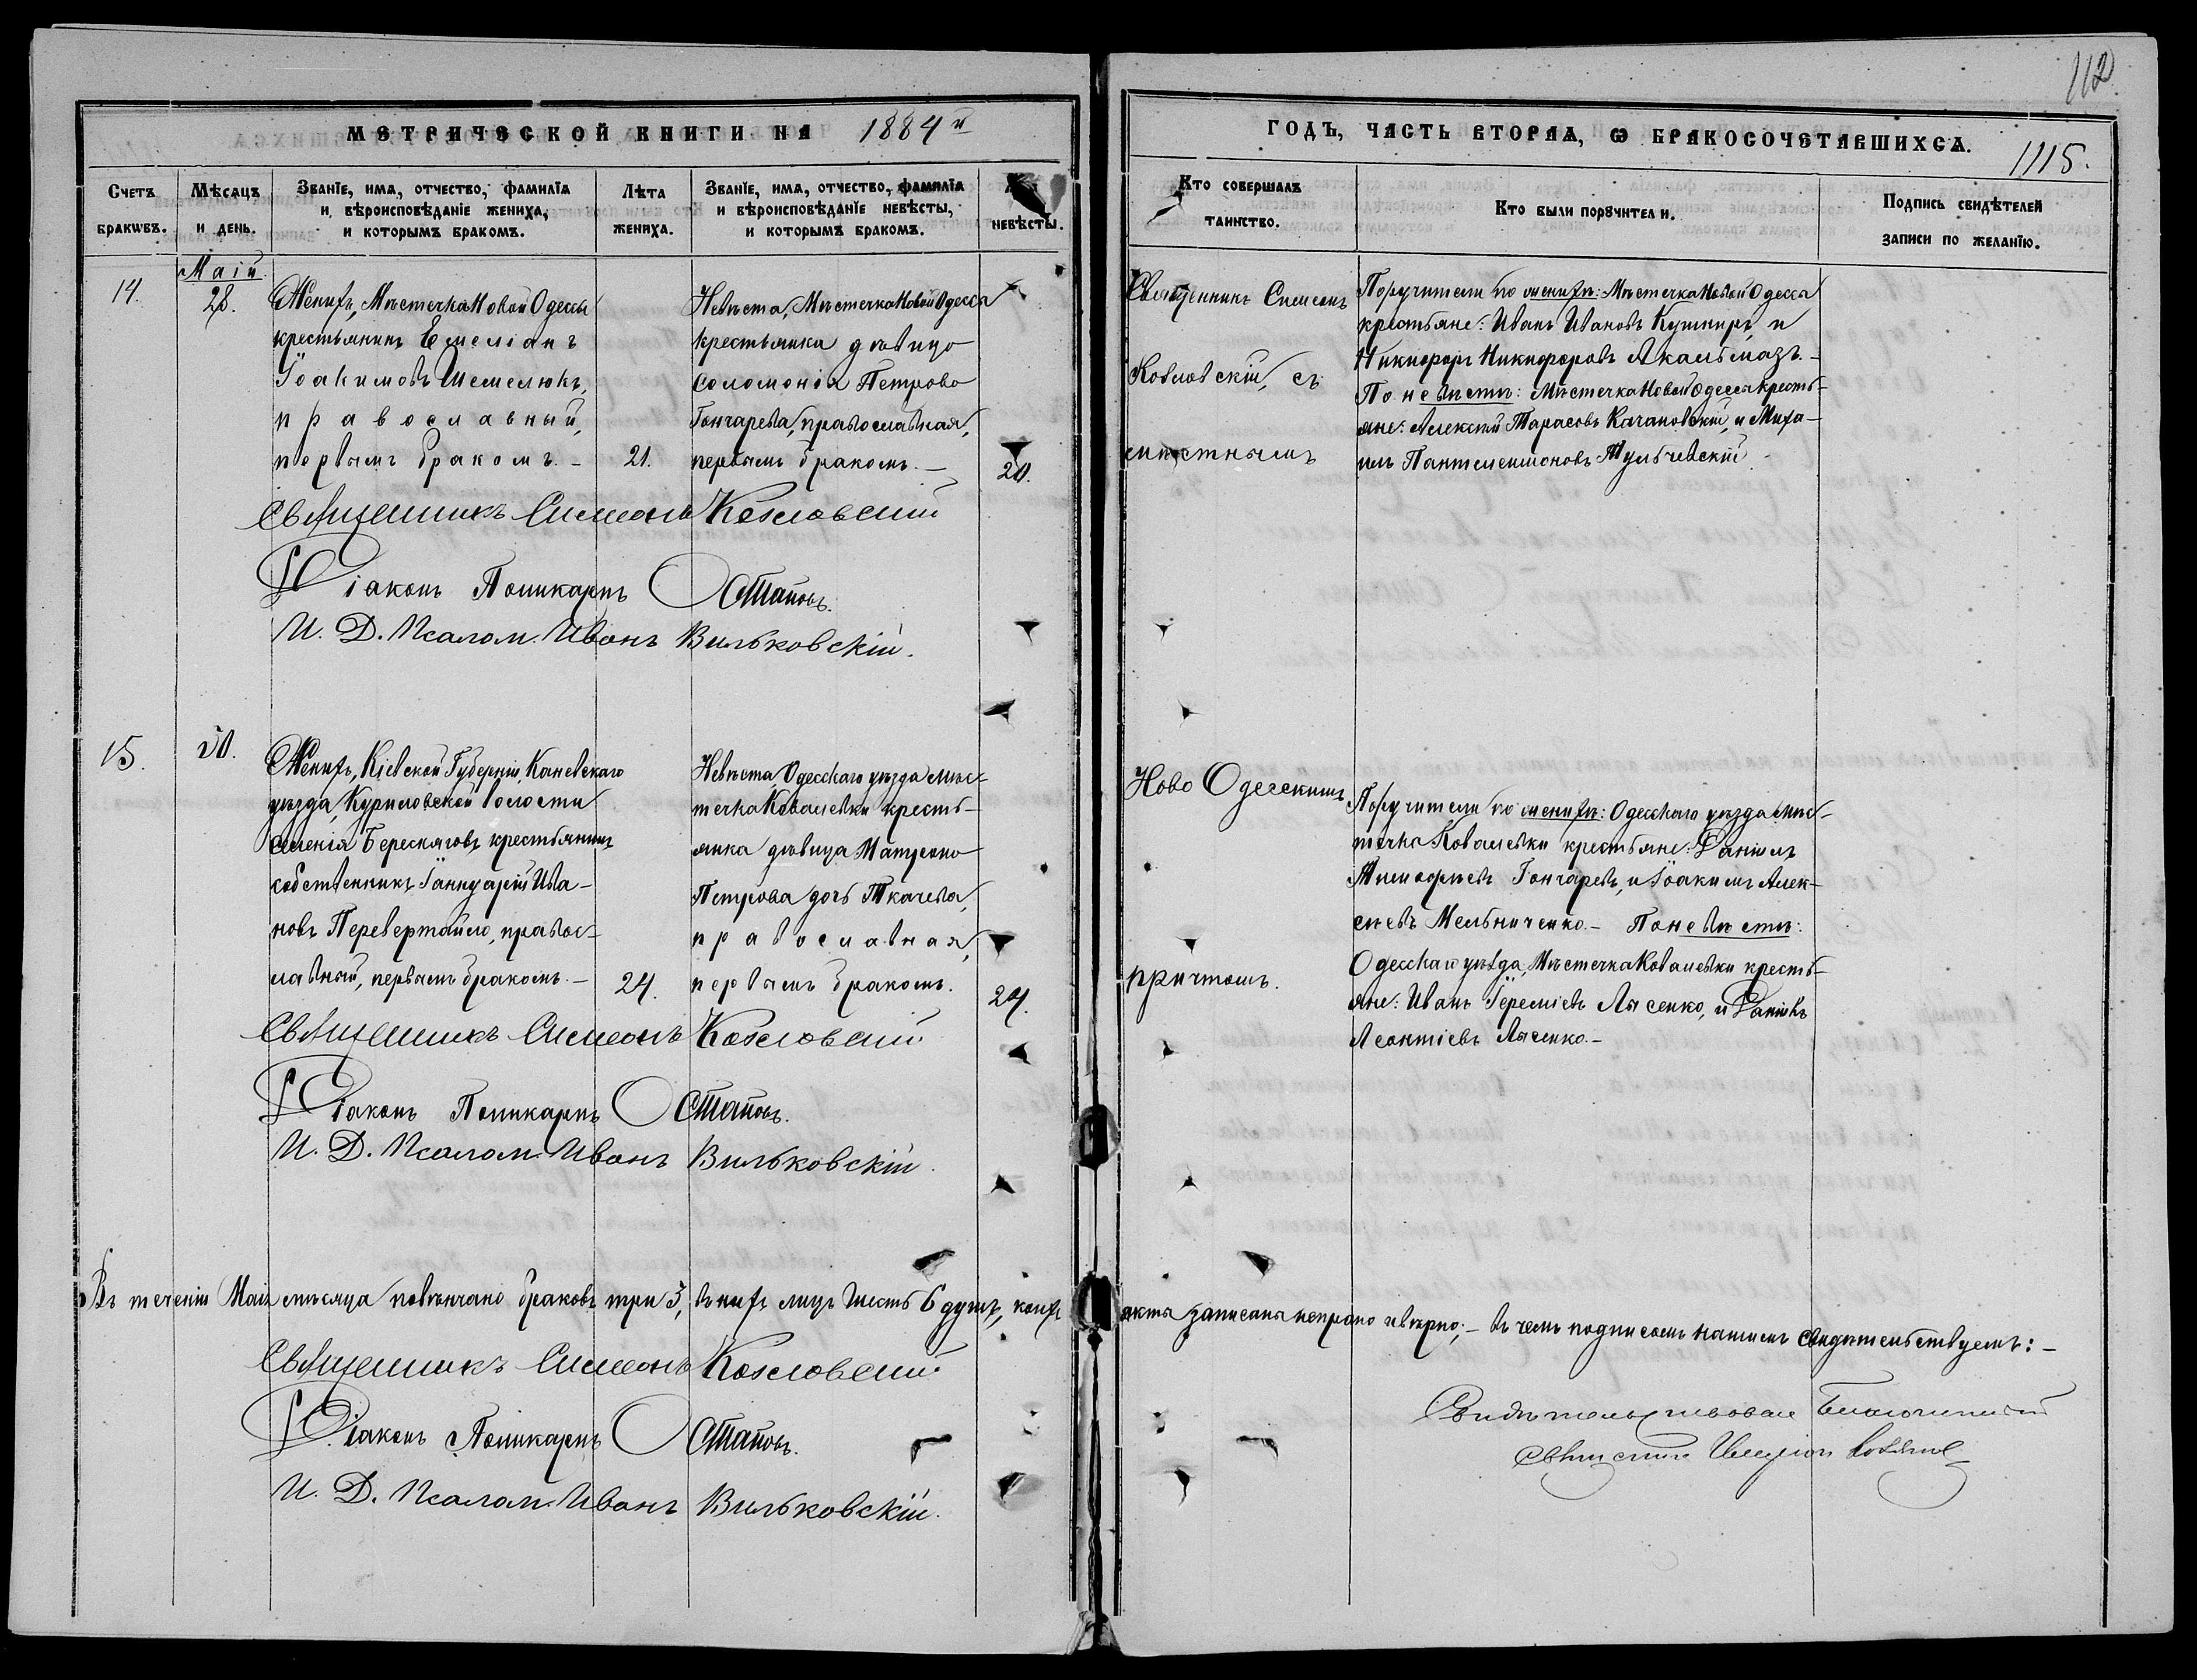 112
МЕТРИЧЕСКОЙ КНИГИ НА 1884 й
ГОДЪ, ЧАСТЬ ВТОРАѦ, Ѡ БРАКОСОЧЕТАВШИХСѦ.
1115.
Счетъ браковъ.
Мѣсяцъ и день.
Званїе, имѧ, отчество, фамилїѧ
и вѣроисповѣданїе жениха,
и которымъ бракомъ.
Лѣта жениха.
Званїе, имѧ, отчество, фамилїѧ
и вѣроисповѣданїе невѣсты,
и которымъ бракомъ.
невѣсты.
Кто совершалъ таинство.
Кто были порꙋчители.
Подпись свидѣтелей
записи по желанїю.
Маій
14.
28.
Женихъ, Мѣстечка Новой Одессы
крестьянинъ Емеліанъ
Іоакимовъ Шемелюкъ,
православный,
первымъ бракомъ. –
21.
Невѣста, Мѣстечка Новой Одесса
крестьянка дѣвица
Соломонія Петрова
Гончарева, православная,
первымъ бракомъ. –
20.
Священникъ Симеонъ
Козловскій, съ
мѣстнымъ
Поручители по женихѣ: Мѣстечка Новой Одесса
крестьяне: Иванъ Ивановъ Кушниръ, и
Никифоръ Никифоровъ Акальмазъ. –
По невѣстѣ: Мѣстечка Новой Одесса кресть-
яне: Алексѣй Тарасовъ Качановскій, и Миха-
илъ Пантелеимоновъ Тульчевскій.
Священникъ Симеонъ Козловскій
Діаконъ Поликарпъ Остаповъ.
И. Д. Псалом. Иванъ Вильковскій.
15.
30.
Женихъ, Кіевской Губерніи, Каневскаго
уѣзда, Куриловской волости
селенія Берескяговъ, крестьянинъ
собственникъ Іаннуарій Ива-
новъ Перевертайло, правос-
лавный, первымъ бракомъ. –
24.
Невѣста Одесскаго уѣзда мѣс-
течка Ковалевки кресть-
янка дѣвица Матрона
Петрова дочь Ткачева,
православная,
первымъ бракомъ.
24.
Ново Одесскимъ
причтомъ.
Поручители по женихѣ: Одесскаго уѣзда мѣс-
течка Ковалевки крестьяне: Даніилъ
Тимофѣевъ Гончаревъ, и Іоакимъ Алек-
сѣевъ Мельниченко. – По невѣстѣ:
Одесскаго уѣзда, Мѣстечка Ковалевки кресть-
яне: Иванъ Іереміевъ Лысенко, и
Леонтіевъ Лысенко. –
Священникъ Симеонъ Козловскій
Діаконъ Поликарпъ Остаповъ.
И. Д. Псалом. Иванъ Вильковскій.
Въ теченіи Маія мѣсяца повѣнчано браковъ три 3, въ нихъ лицъ шесть 6 душъ, коихъ акты записаны исправно и вѣрно; – въ чемъ подписомъ нашимъ свидѣтельствуемъ: –
Священникъ Симеонъ Козловскій
Діаконъ Поликарпъ Остаповъ.
И. Д. Псалом. Иванъ Вильковскій.
Свидѣтельствовалъ Благочинный